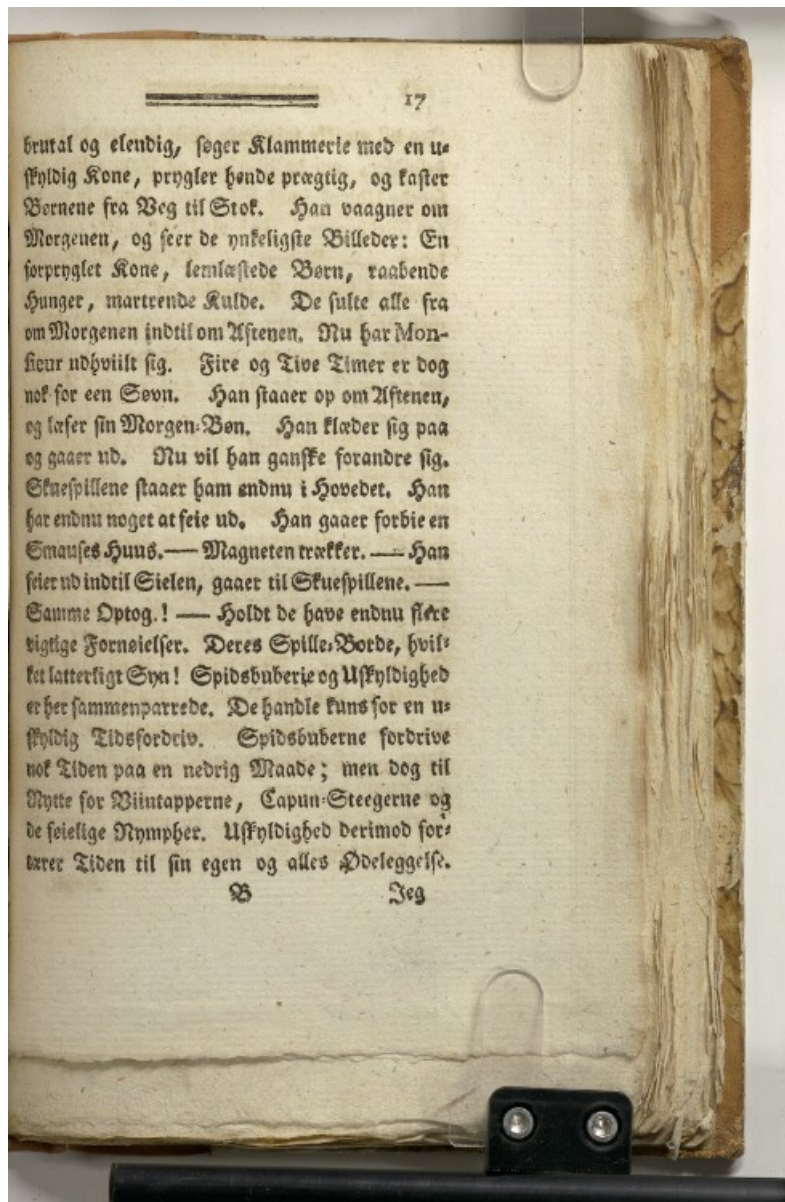 17
brutal og elendig, søger Klammerie med en u-
skyldig Kone, prygler hende prægtig, og kaster
Børnene fra Veg til Stok. Han vaagner om
Morgenen, og seer de ynkeligste Billeder: En
forpryglet Kone, lemlæstede Børn, raabende
Hunger, martrende Kulde. De sulte alle fra
om Morgenen indtil om Aftenen. Nu har Mon-
sieur udhviilt sig. Fire og Tive Timer er dog
nok for een Søvn. Han staaer op om Aftenen,
og læser sin Morgen-Bøn. Han klæder sig paa
og gaaer ud. Nu vil han ganske forandre sig.
Skuespillene staaer ham endnu i Hovedet. Han
har endnu noget at feie ud. Han gaaer forbie en
Smauses Huus. — Magneten trækker. — Han
feier ud indtil Sielen, gaaer til Skuespillene. —
Samme Optog.! — Holdt de have endnu flere
vigtige Fornøielser. Deres Spille-Borde, hvil-
ket latterligt Syn! Spidsbuberie og Uskyldighed
er her sammenparrede. De handle kuns for en u-
skyldig Tidsfordriv. Spidsbuberne fordrive
nok Tiden paa en nedrig Maade; men dog til
Nytte for Viintapperne, Capun-Steegerne og
de feielige Nympher. Uskyldighed derimod for-
tærer Tiden til sin egen og alles Ødeleggelse.
B Jeg